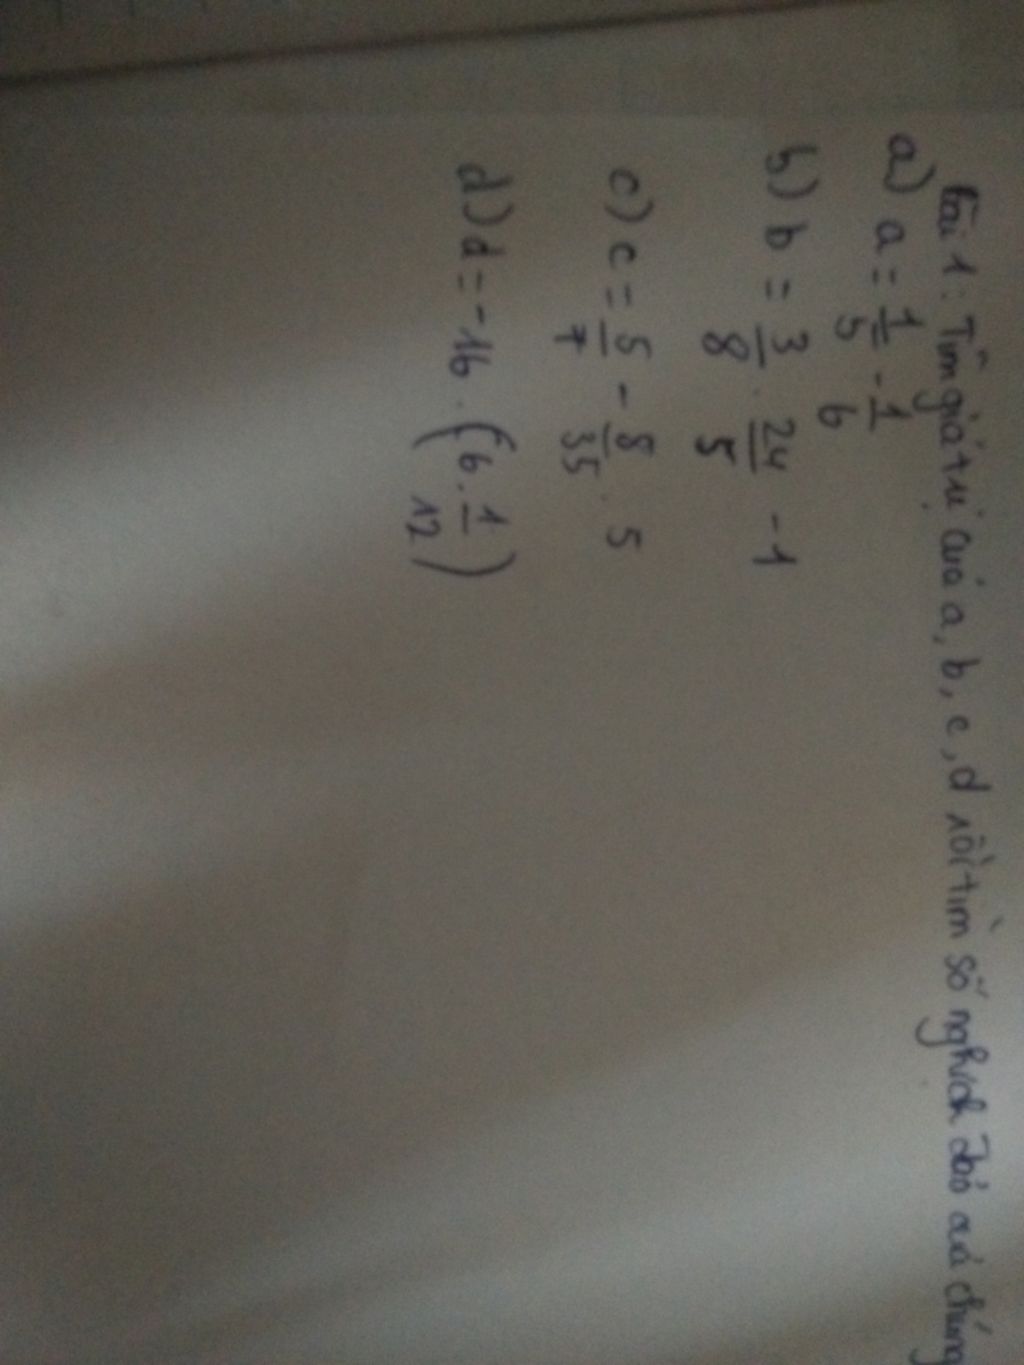 Bài 1: Tìm giá trị của a, b, c, d rồi tìm số nghịch đảo của chúng
a) a = 1/5 - 1/6
b) b = 3/8 . 24/5 - 1
c) c = 5/7 - 8/35 . 5
d) d = -16 . (6 . 1/12)